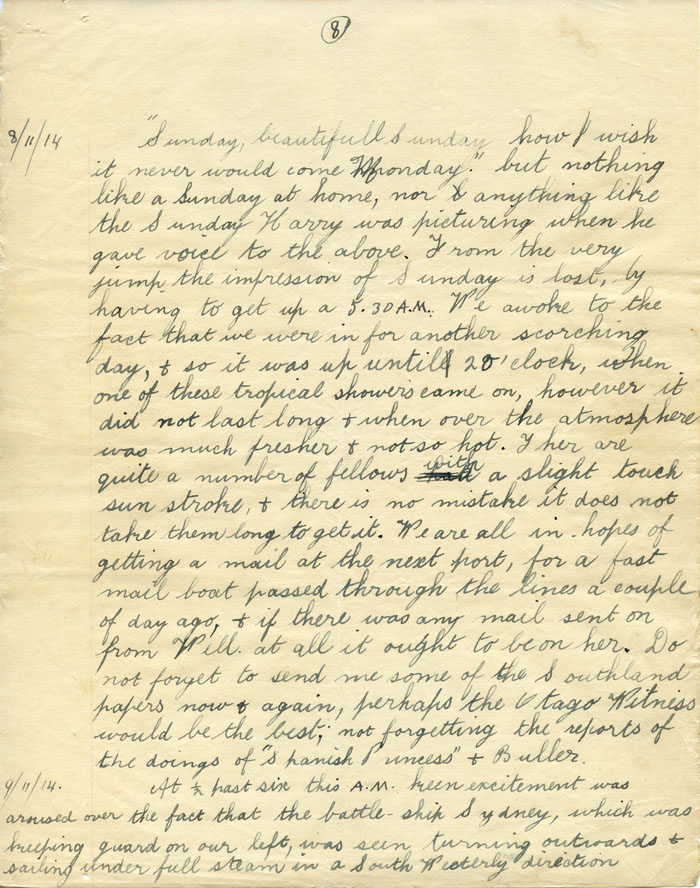 8
8/11/14 "Sunday, beautifull Sunday how I wish
it never would come Monday." but nothing
like a Sunday at home, nor & anything like
the Sunday Harry was picturing when he
gave voice to the above. From the very
jump the impression of Sunday is lost, by
having to get up a 5.30 A.M. We awoke to the
fact that we were in for another scorching
day, & so it was up until 2 o'clock, when
one of these tropical showers came on, however it
did not last long & when over the atmosphere
was much fresher & not so hot. Ther are
quite a number of fellows with a slight touch
sun stroke, & there is no mistake it does not
take them long to get it. We are all in hopes of
getting a mail at the next port, for a fast
mail boat passed through the lines a couple
of day ago, & if there was any mail sent on
from Well. at all it ought to be on her. Do
not forget to send me some of the Southland
papers now & again, perhaps the Otago Witness
would be the best; not forgetting the reports of
the doings of "Spanish Puncess" & Buller.
9/11/14. At ½ past six this A.M. keen excitement was
aroused over the fact that the battle-ship Sydney, which was
keeping guard on our left, was seen turning outwards &
sailing under full steam in a South Westerly direction